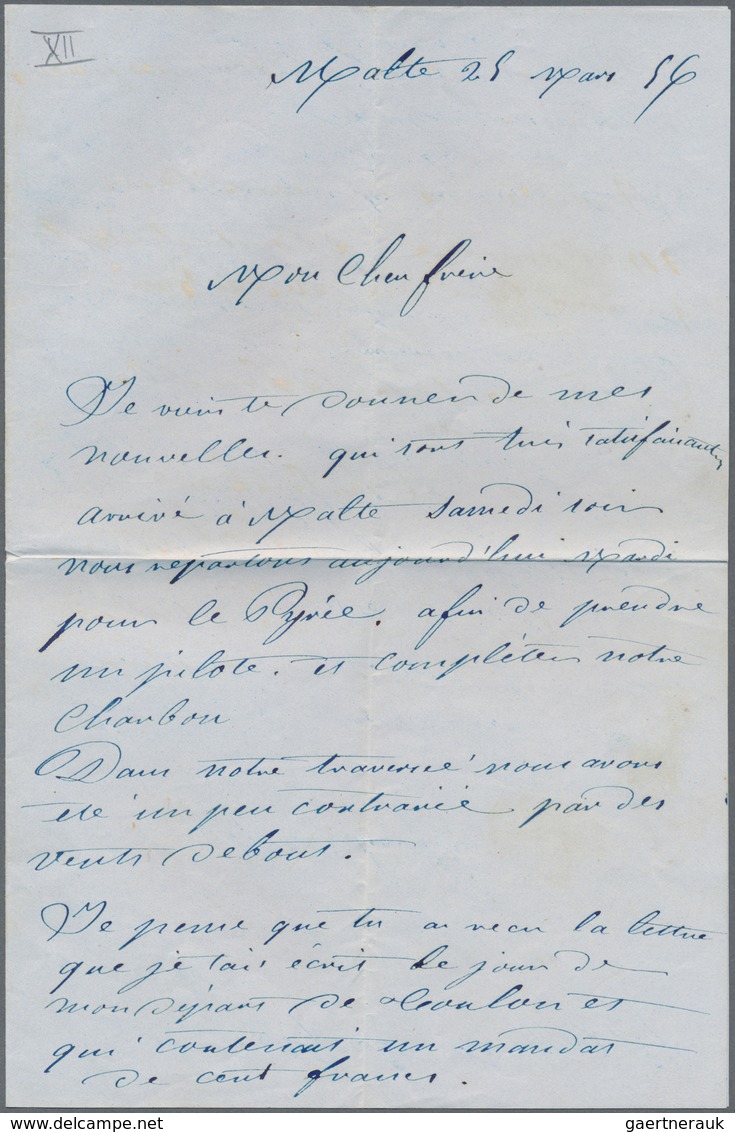 XII
Malte 25 Mars 56
Mon Cher frère
Je viens te donner de mes
nouvelles. qui sont très satisfaisantes
arrivé à Malte Samedi soir
nous repartons aujourd'hui Mardi
pour le Pyrée. afin de prendre
un pilote. et compléter notre
Charbon
Dans notre traversée nous avons
été un peu contrarié par des
vents debout.
Je pense que tu a recu la lettre
que je tai écrit le jour de
mon départ de Toulon et
qui contenait un mandat
de cent francs.
gaertnerauk